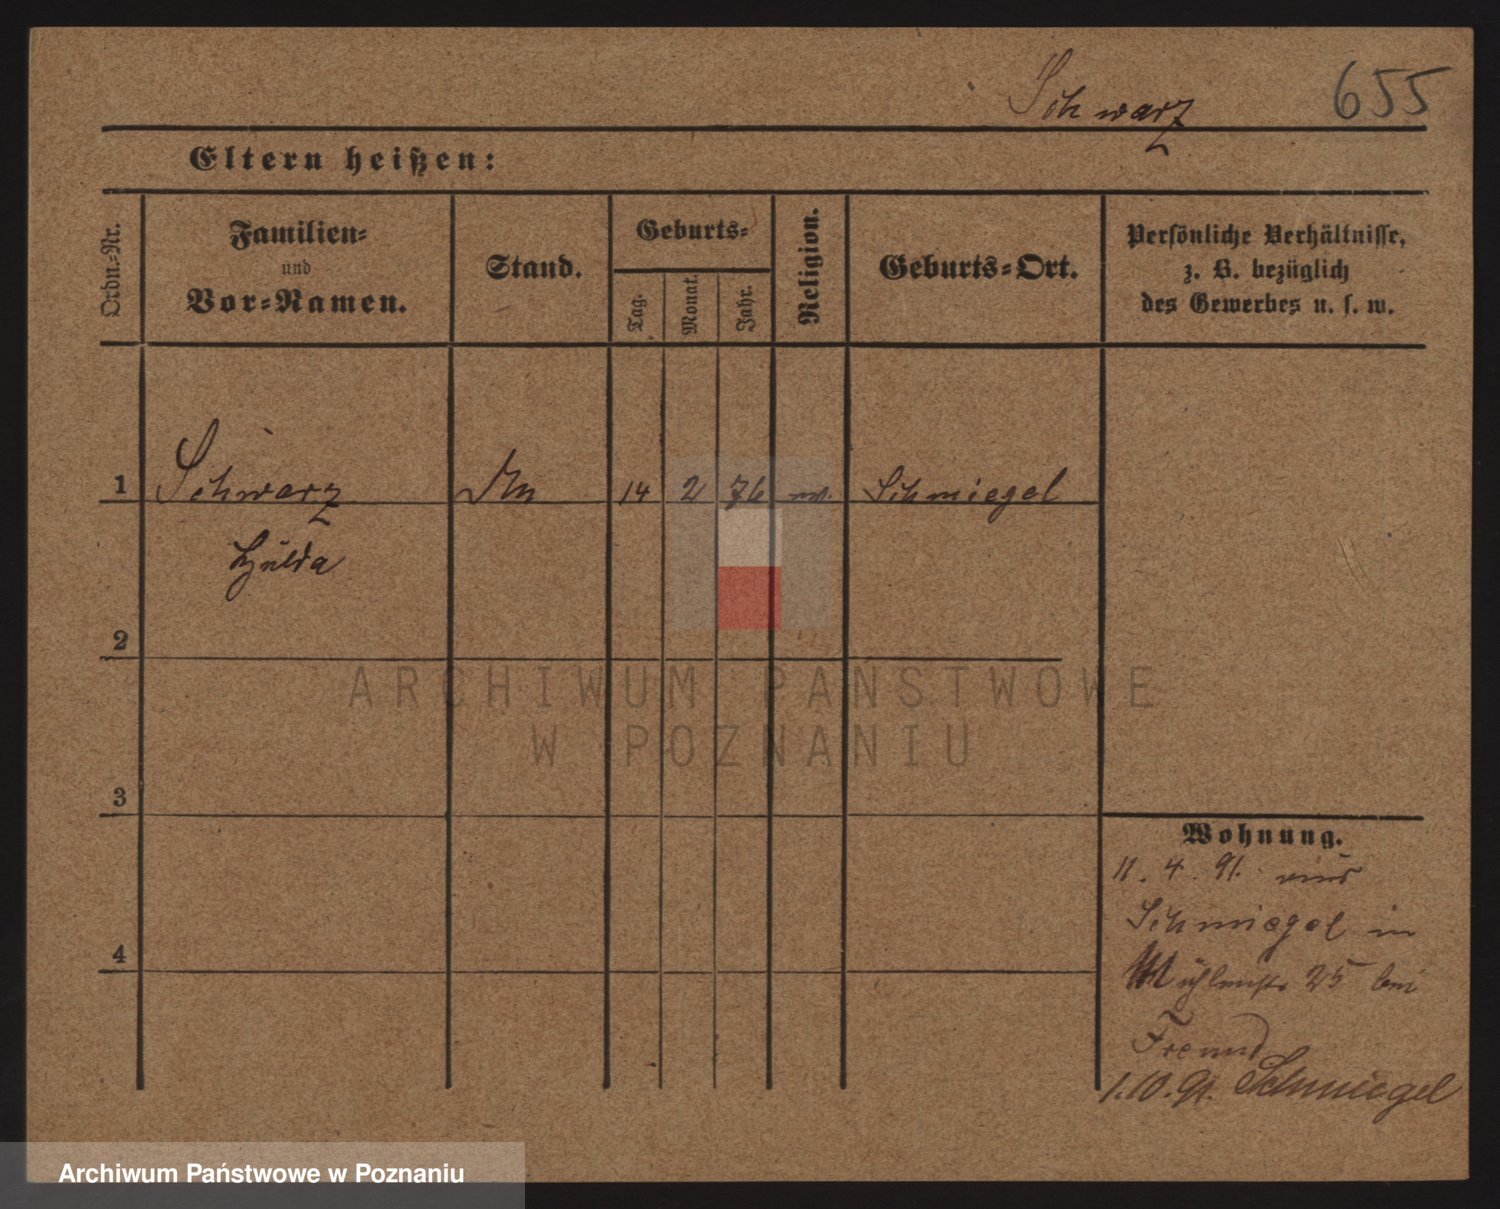 Schwarz 655
Eltern heißen:
Ordn.-Nr.
Familien-
und
Vor-Namen.
Stand.
Geburts-
Tag.
Monat.
Jahr.
Religion.
Geburts-Ort.
Persönliche Verhältnisse,
z. B. bezüglich
des Gewerbes u. s. w.
1 Schwarz 14 2 76 Schmiegel
Hulda
2
3
4
ARCHIWUM PAŃSTWOWE
W POZNANIU
Wohnung.
11. 4. 91. aus
Schmiegel in
Mühlenstr. 25 bei
Freund
1.10.91. Schmiegel
Archiwum Państwowe w Poznaniu